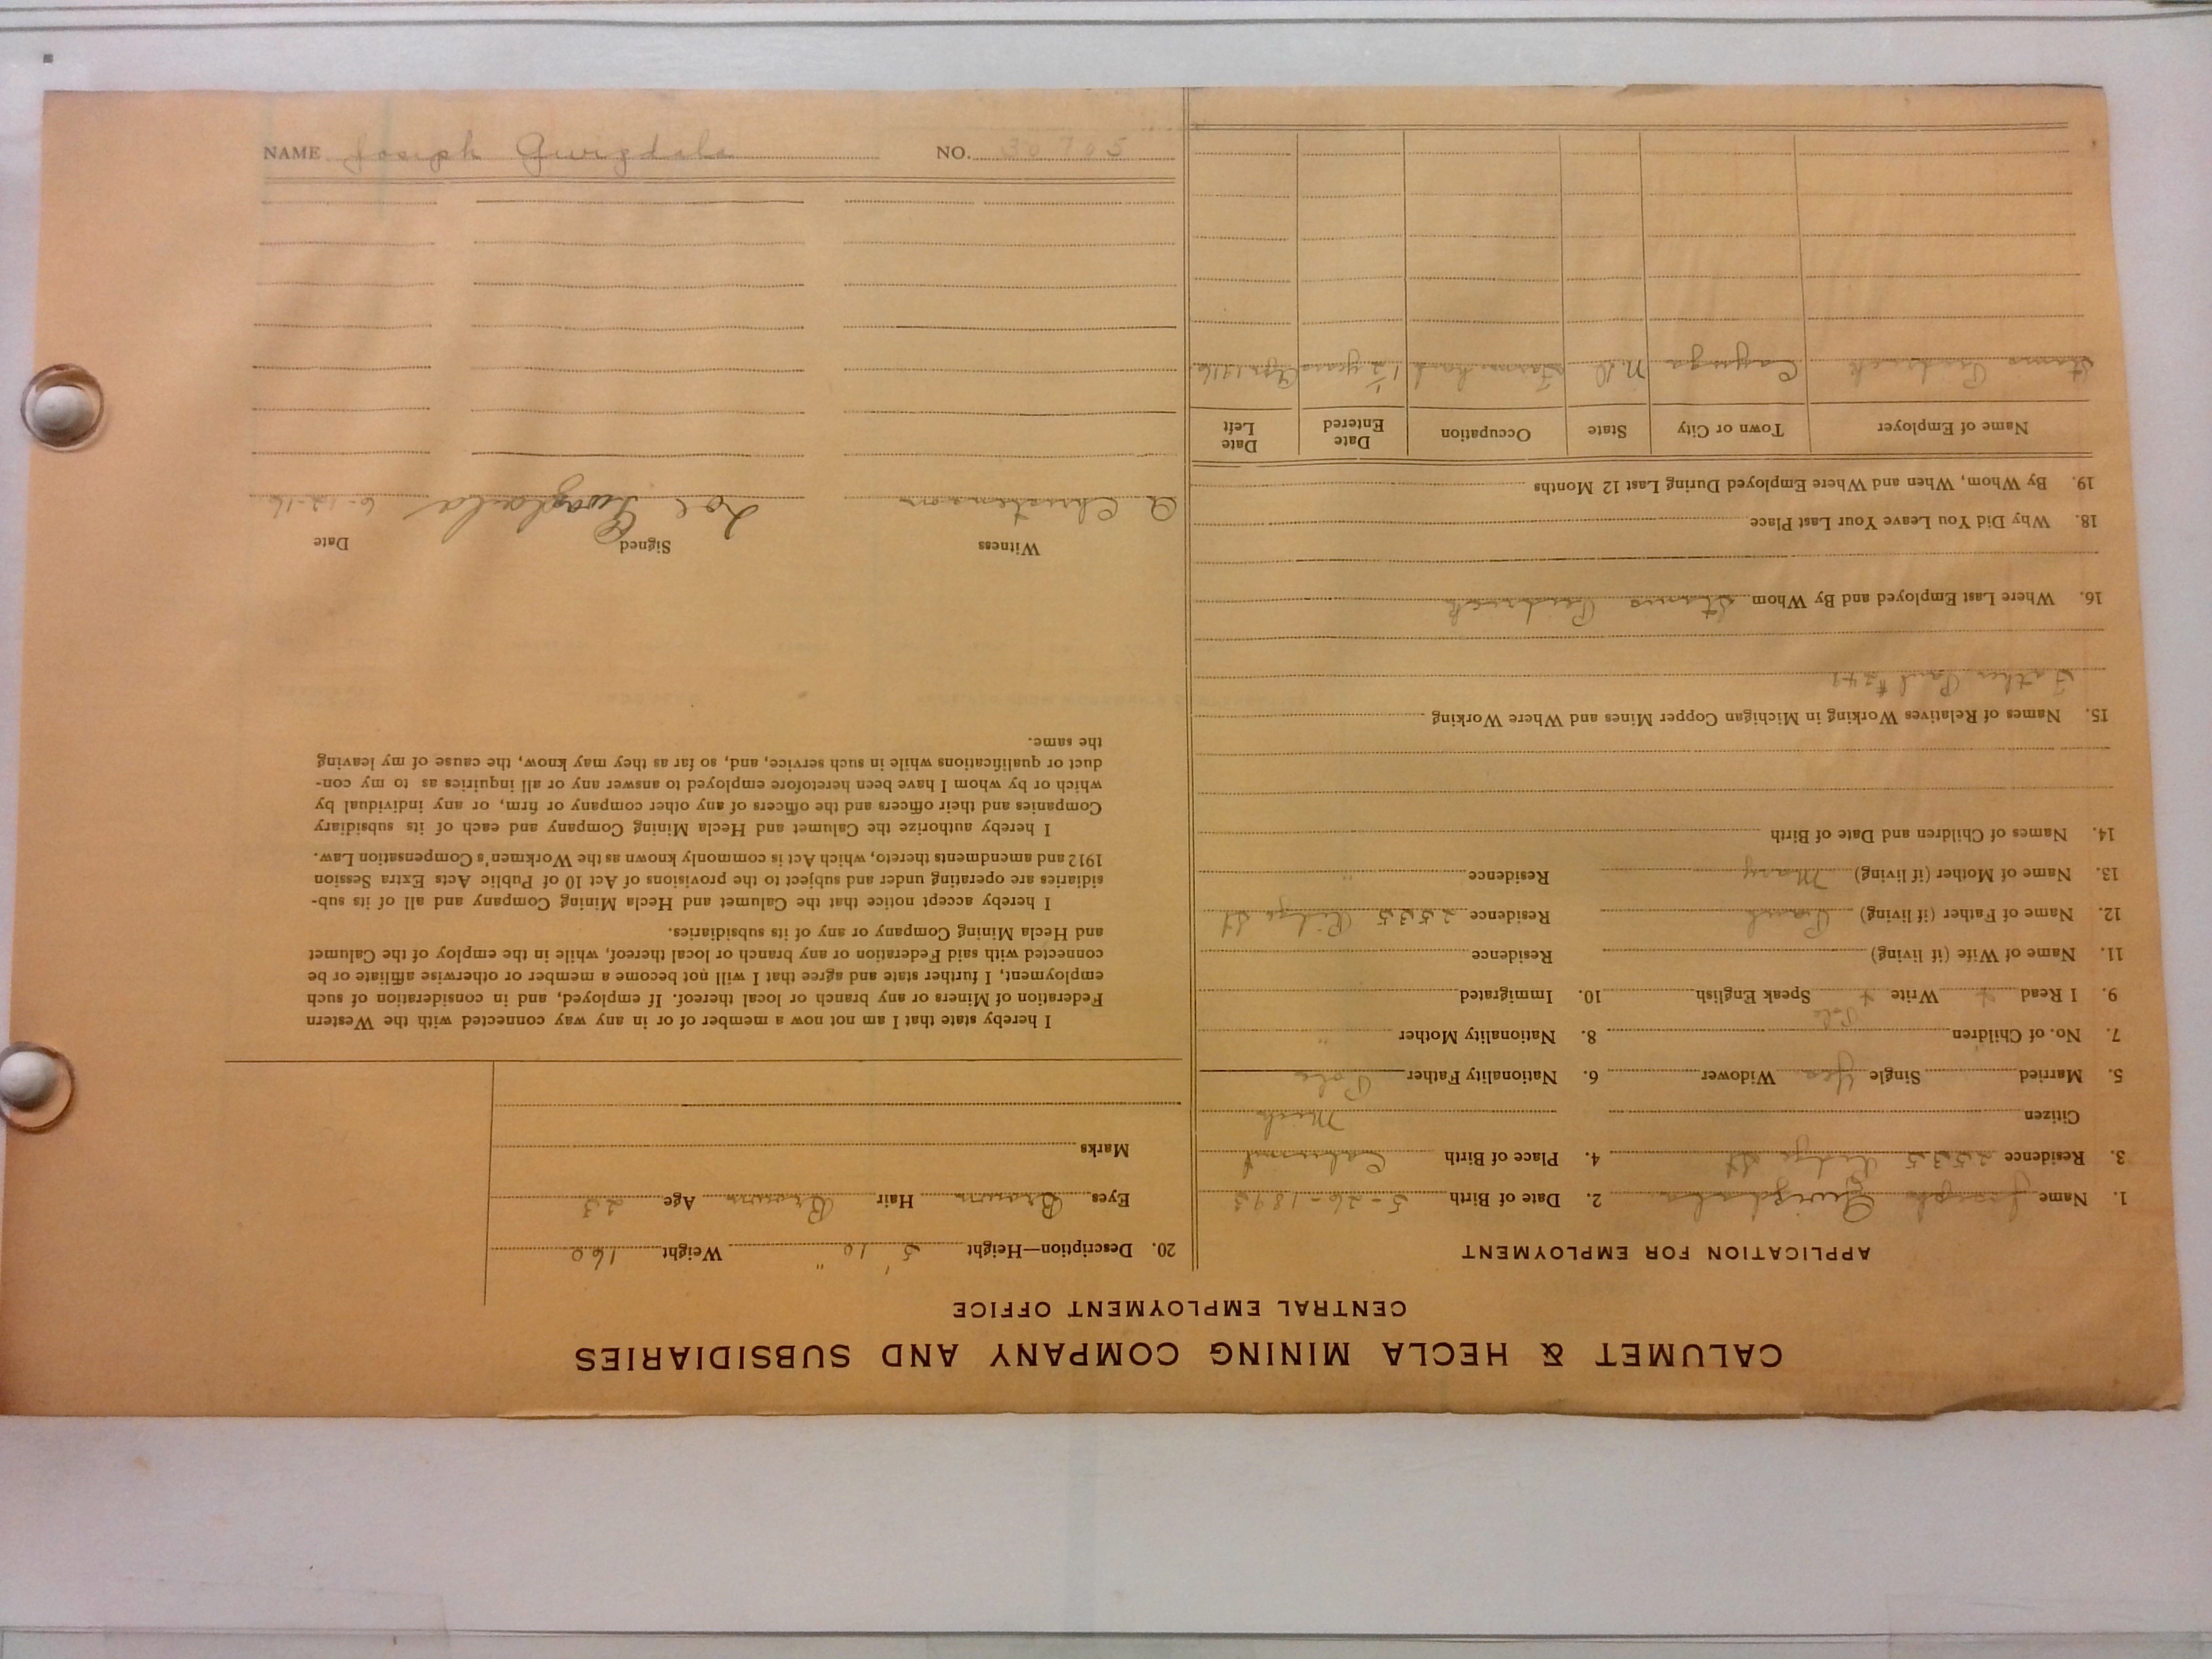 CALUMET & HECLA MINING COMPANY AND SUBSIDIARIES
CENTRAL EMPLOYMENT OFFICE
APPLICATION FOR EMPLOYMENT
1. Name Joseph Gwizdala 2. Date of Birth 5-26-1893
3. Residence 2535 Ridge St 4. Place of Birth Calumet
Citizen Mich
5. Married Single Yes Widower 6. Nationality Father Pole
7. No. of Children 8. Nationality Mother "
9. I Read + Write + Speak English Pole 10. Immigrated
11. Name of Wife (if living) Residence
12. Name of Father (if living) Paul Residence 2535 Ridge St
13. Name of Mother (if living) Mary Residence "
14. Names of Children and Date of Birth
15. Names of Relatives Working in Michigan Copper Mines and Where Working
Father Paul
16. Where Last Employed and By Whom
18. Why Did You Leave Your Last Place
19. By Whom, When and Where Employed During Last 12 Months
Name of Employer Town or City State Occupation Date Entered Date Left
Cayuga N.D. Farm hand 1 1/2 years Apr 1916
20. Description—Height 5' 10" Weight 160
Eyes Brown Hair Brown Age 23
Marks
I hereby state that I am not now a member of or in any way connected with the Western
Federation of Miners or any branch or local thereof. If employed, and in consideration of such
employment, I further state and agree that I will not become a member or otherwise affiliate or be
connected with said Federation or any branch or local thereof, while in the employ of the Calumet
and Hecla Mining Company or any of its subsidiaries.
I hereby accept notice that the Calumet and Hecla Mining Company and all of its sub-
sidiaries are operating under and subject to the provisions of Act 10 of Public Acts Extra Session
1912 and amendments thereto, which Act is commonly known as the Workmen's Compensation Law.
I hereby authorize the Calumet and Hecla Mining Company and each of its subsidiary
Companies and their officers and the officers of any other company or firm, or any individual by
which or by whom I have been heretofore employed to answer any or all inquiries as to my con-
duct or qualifications while in such service, and, so far as they may know, the cause of my leaving
the same.
Witness Signed Date
A Christensen Joe 6-12-16
NAME Joseph Gwizdala NO. 30705